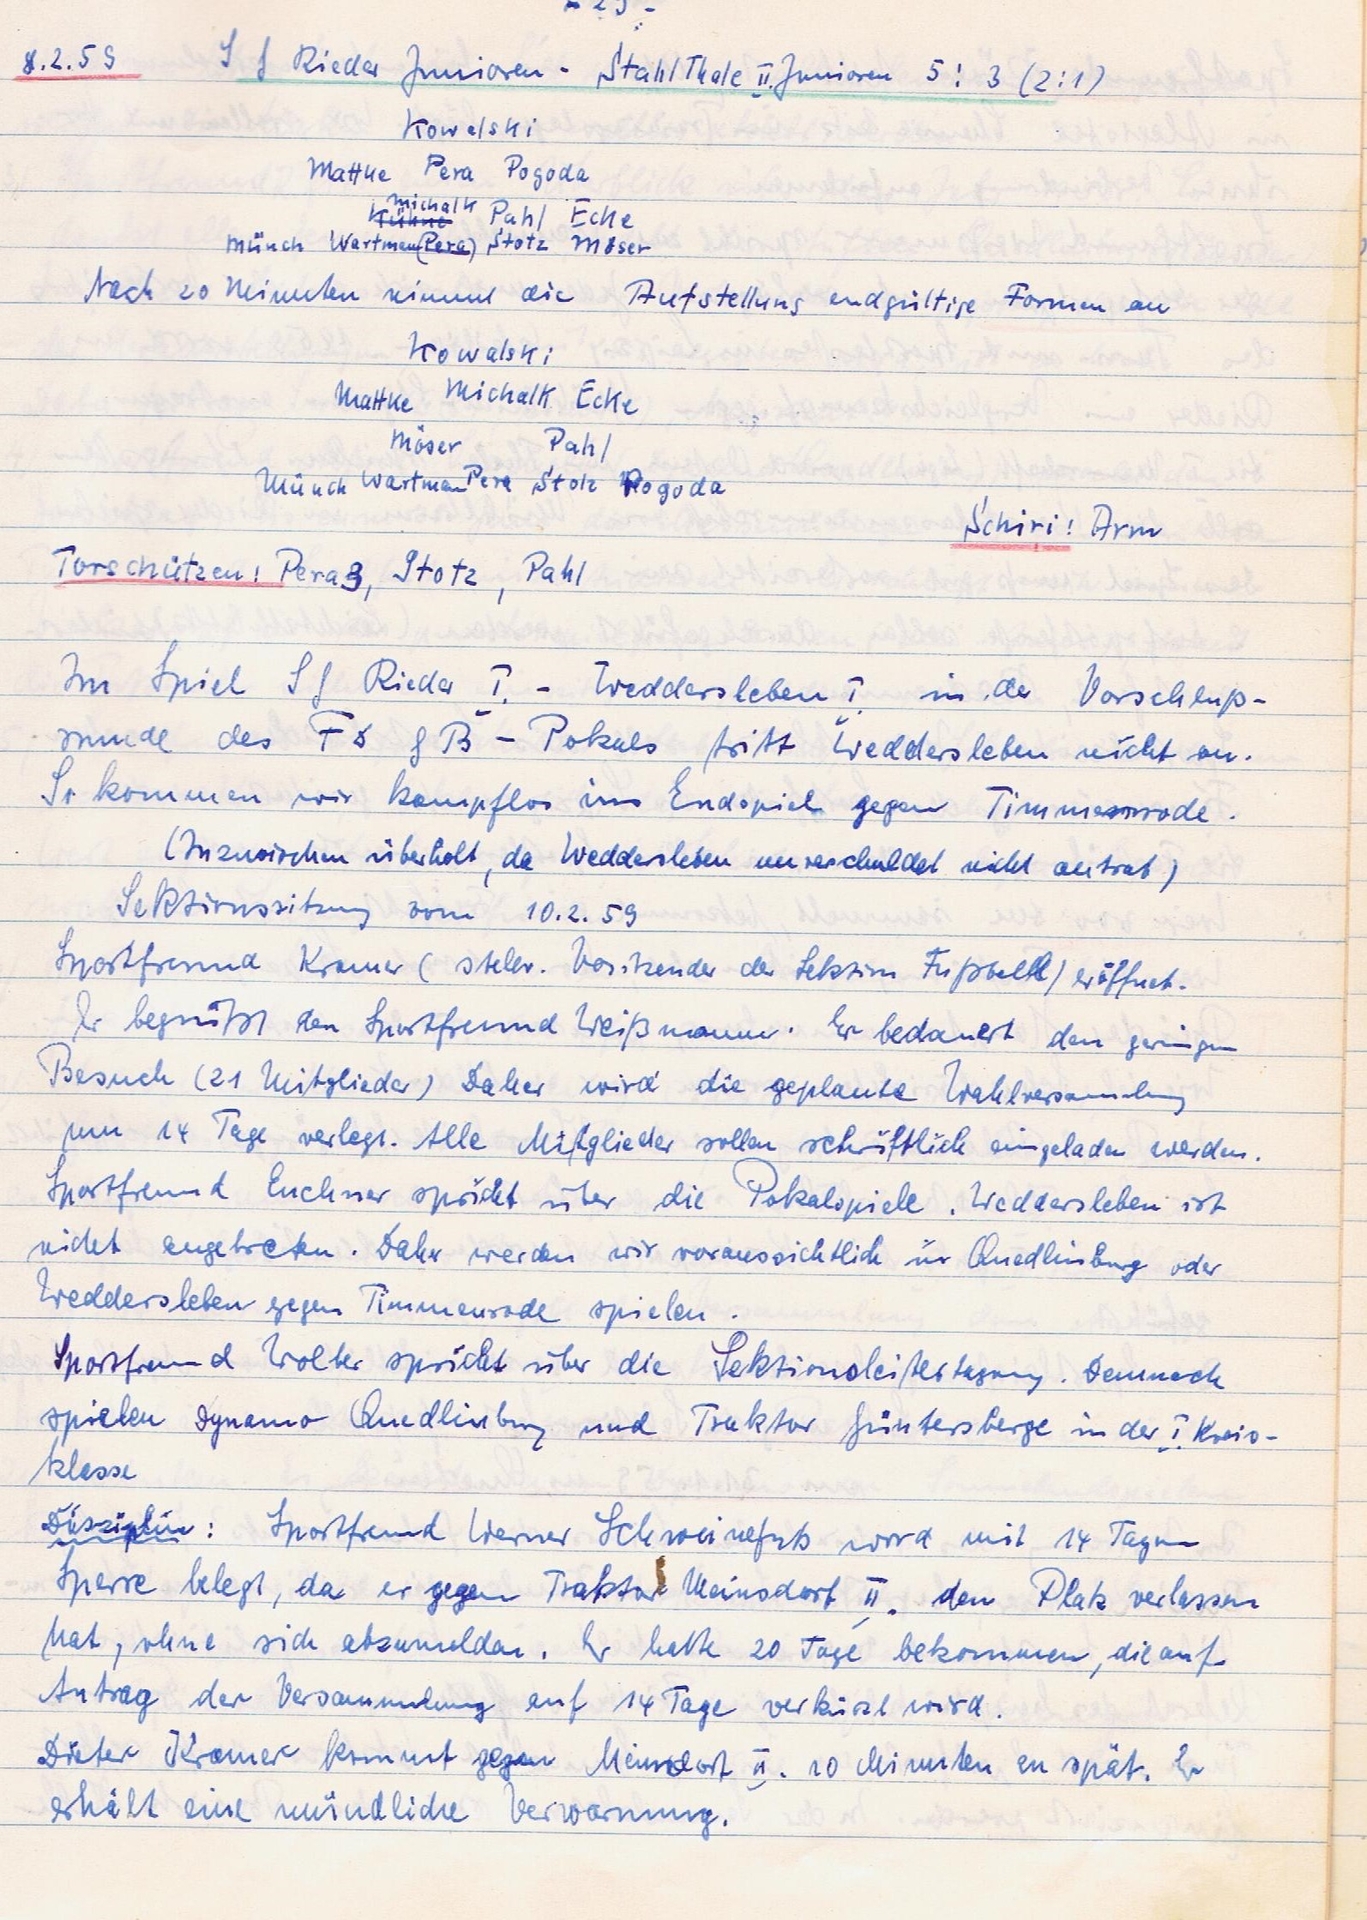 - 29 -
8.2.59 SG Rieder Junioren - Stahl Thale II. Junioren 5:3 (2:1)
Kowalski
Mattke Pera Pogoda
Michalk
Kühne Pahl Ecke
Münch Wartman (Pera) Stotz Möser
Nach 20 Minuten nimmt die Aufstellung endgültige Formen an
Kowalski
Mattke Michalk Ecke
Möser Pahl
Münch Wartman Pera Stotz Pogoda
Schiri: Arm
Torschützen: Pera 3, Stotz, Pahl
Im Spiel SG Rieder I. - Weddersleben I. in der Vorschluß-
runde des FDGB-Pokals tritt Weddersleben nicht an.
So kommen wir kampflos ins Endspiel gegen Timmenrode.
(Inzwischen überholt, da Weddersleben unverschuldet nicht antrat)
Sektionssitzung vom 10.2.59
Sportfreund Kramer (stellv. Vorsitzender der Sektion Fußball) eröffnet.
Er begrüßt den Sportfreund Weißmann. Er bedauert den geringen
Besuch (21 Mitglieder) Daher wird die geplante Wahlversammlung
um 14 Tage verlegt. Alle Mitglieder sollen schriftlich eingeladen werden.
Sportfreund Euchner spricht über die Pokalspiele. Weddersleben ist
nicht angetreten. Daher werden wir voraussichtlich in Quedlinburg oder
Weddersleben gegen Timmenrode spielen.
Sportfreund Wolter spricht über die Sektionsleitertagung. Demnach
spielen Dynamo Quedlinburg und Traktor Güntersberge in der I. Kreis-
klasse
Disziplin: Sportfreund Werner Schweinefuß wird mit 14 Tagen
Sperre belegt, da er gegen Traktor Meinsdorf II. den Platz verlassen
hat, ohne sich abzumelden. Er hatte 20 Tage bekommen, die auf
Antrag der Versammlung auf 14 Tage verkürzt wird.
Dieter Kramer kommt gegen Meinsdorf II. 10 Minuten zu spät. Er
erhält eine mündliche Verwarnung.